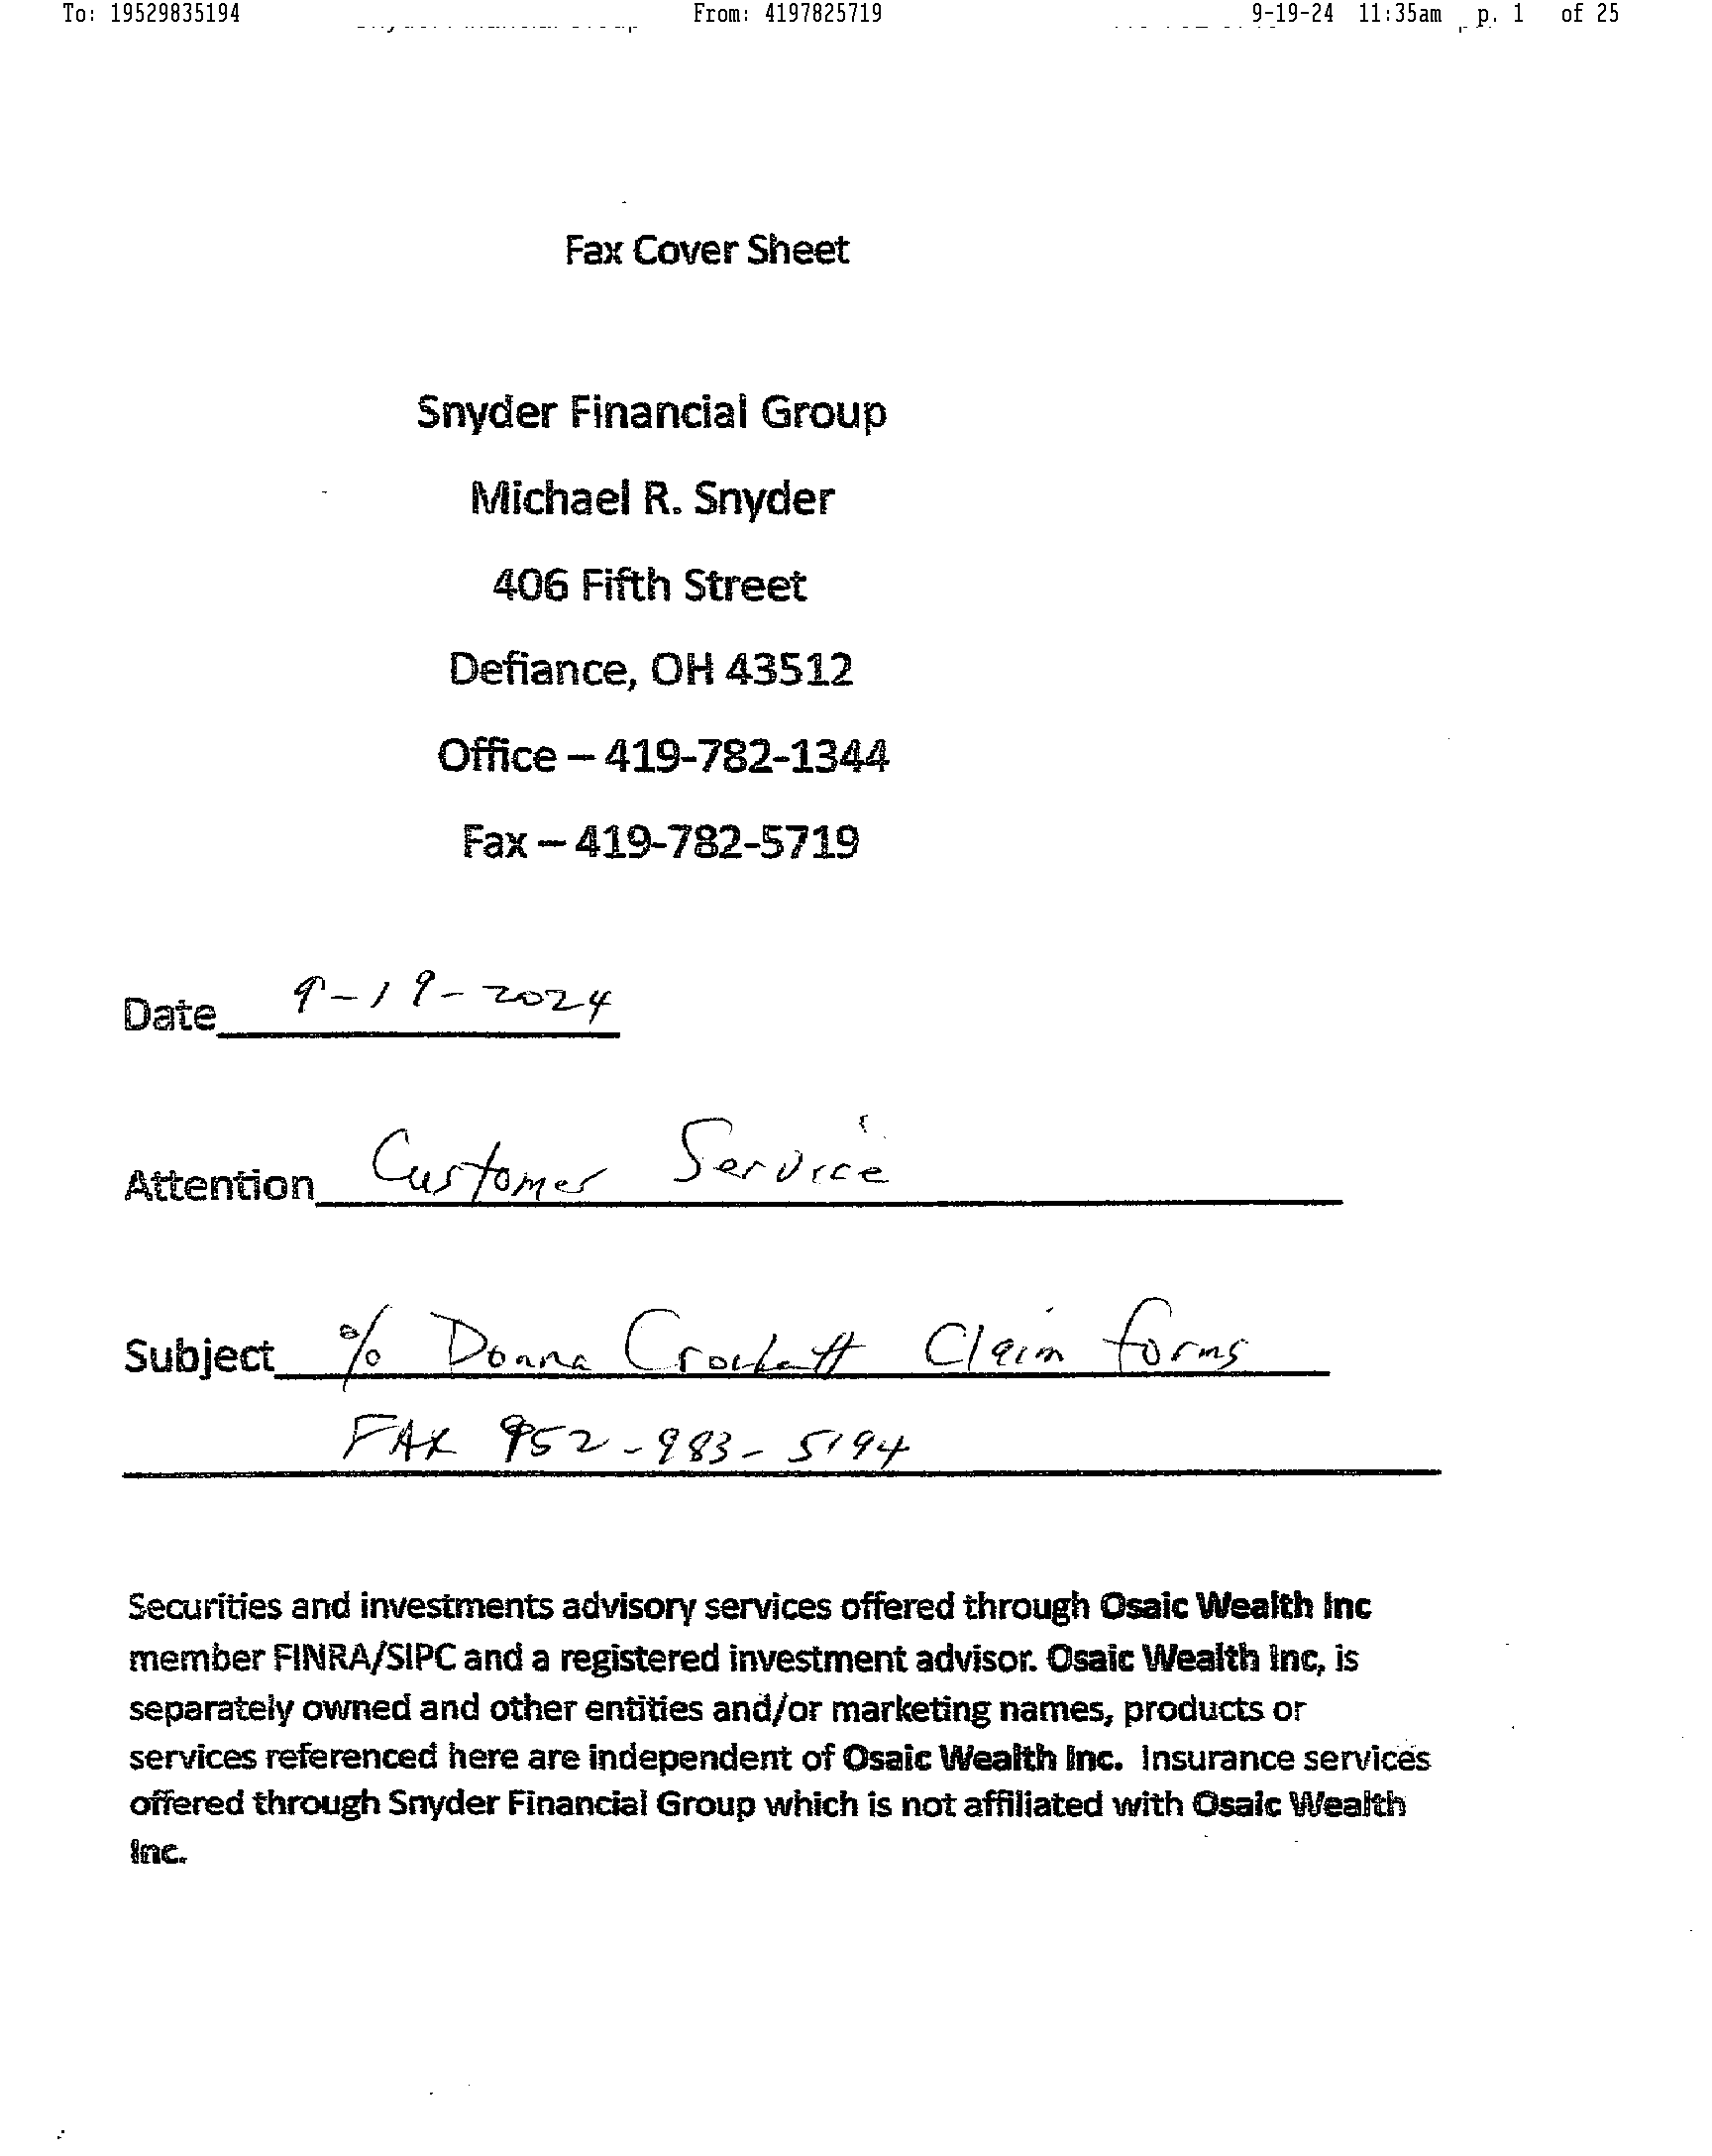 To: 19529835194 From: 4197825719 9-19-24 11:35am p. 1 of 25
Fax Cover Sheet
Snyder Financial Group
Michael R. Snyder
406 Fifth Street
Defiance, OH 43512
Office – 419-782-1344
Fax – 419-782-5719
Date 9-19-2024
Attention Customer Service
Subject % Donna Crockett Claim forms
FAX 952-983-5194
Securities and investments advisory services offered through Osaic Wealth Inc
member FINRA/SIPC and a registered investment advisor. Osaic Wealth Inc, is
separately owned and other entities and/or marketing names, products or
services referenced here are independent of Osaic Wealth Inc. Insurance services
offered through Snyder Financial Group which is not affiliated with Osaic Wealth
Inc.